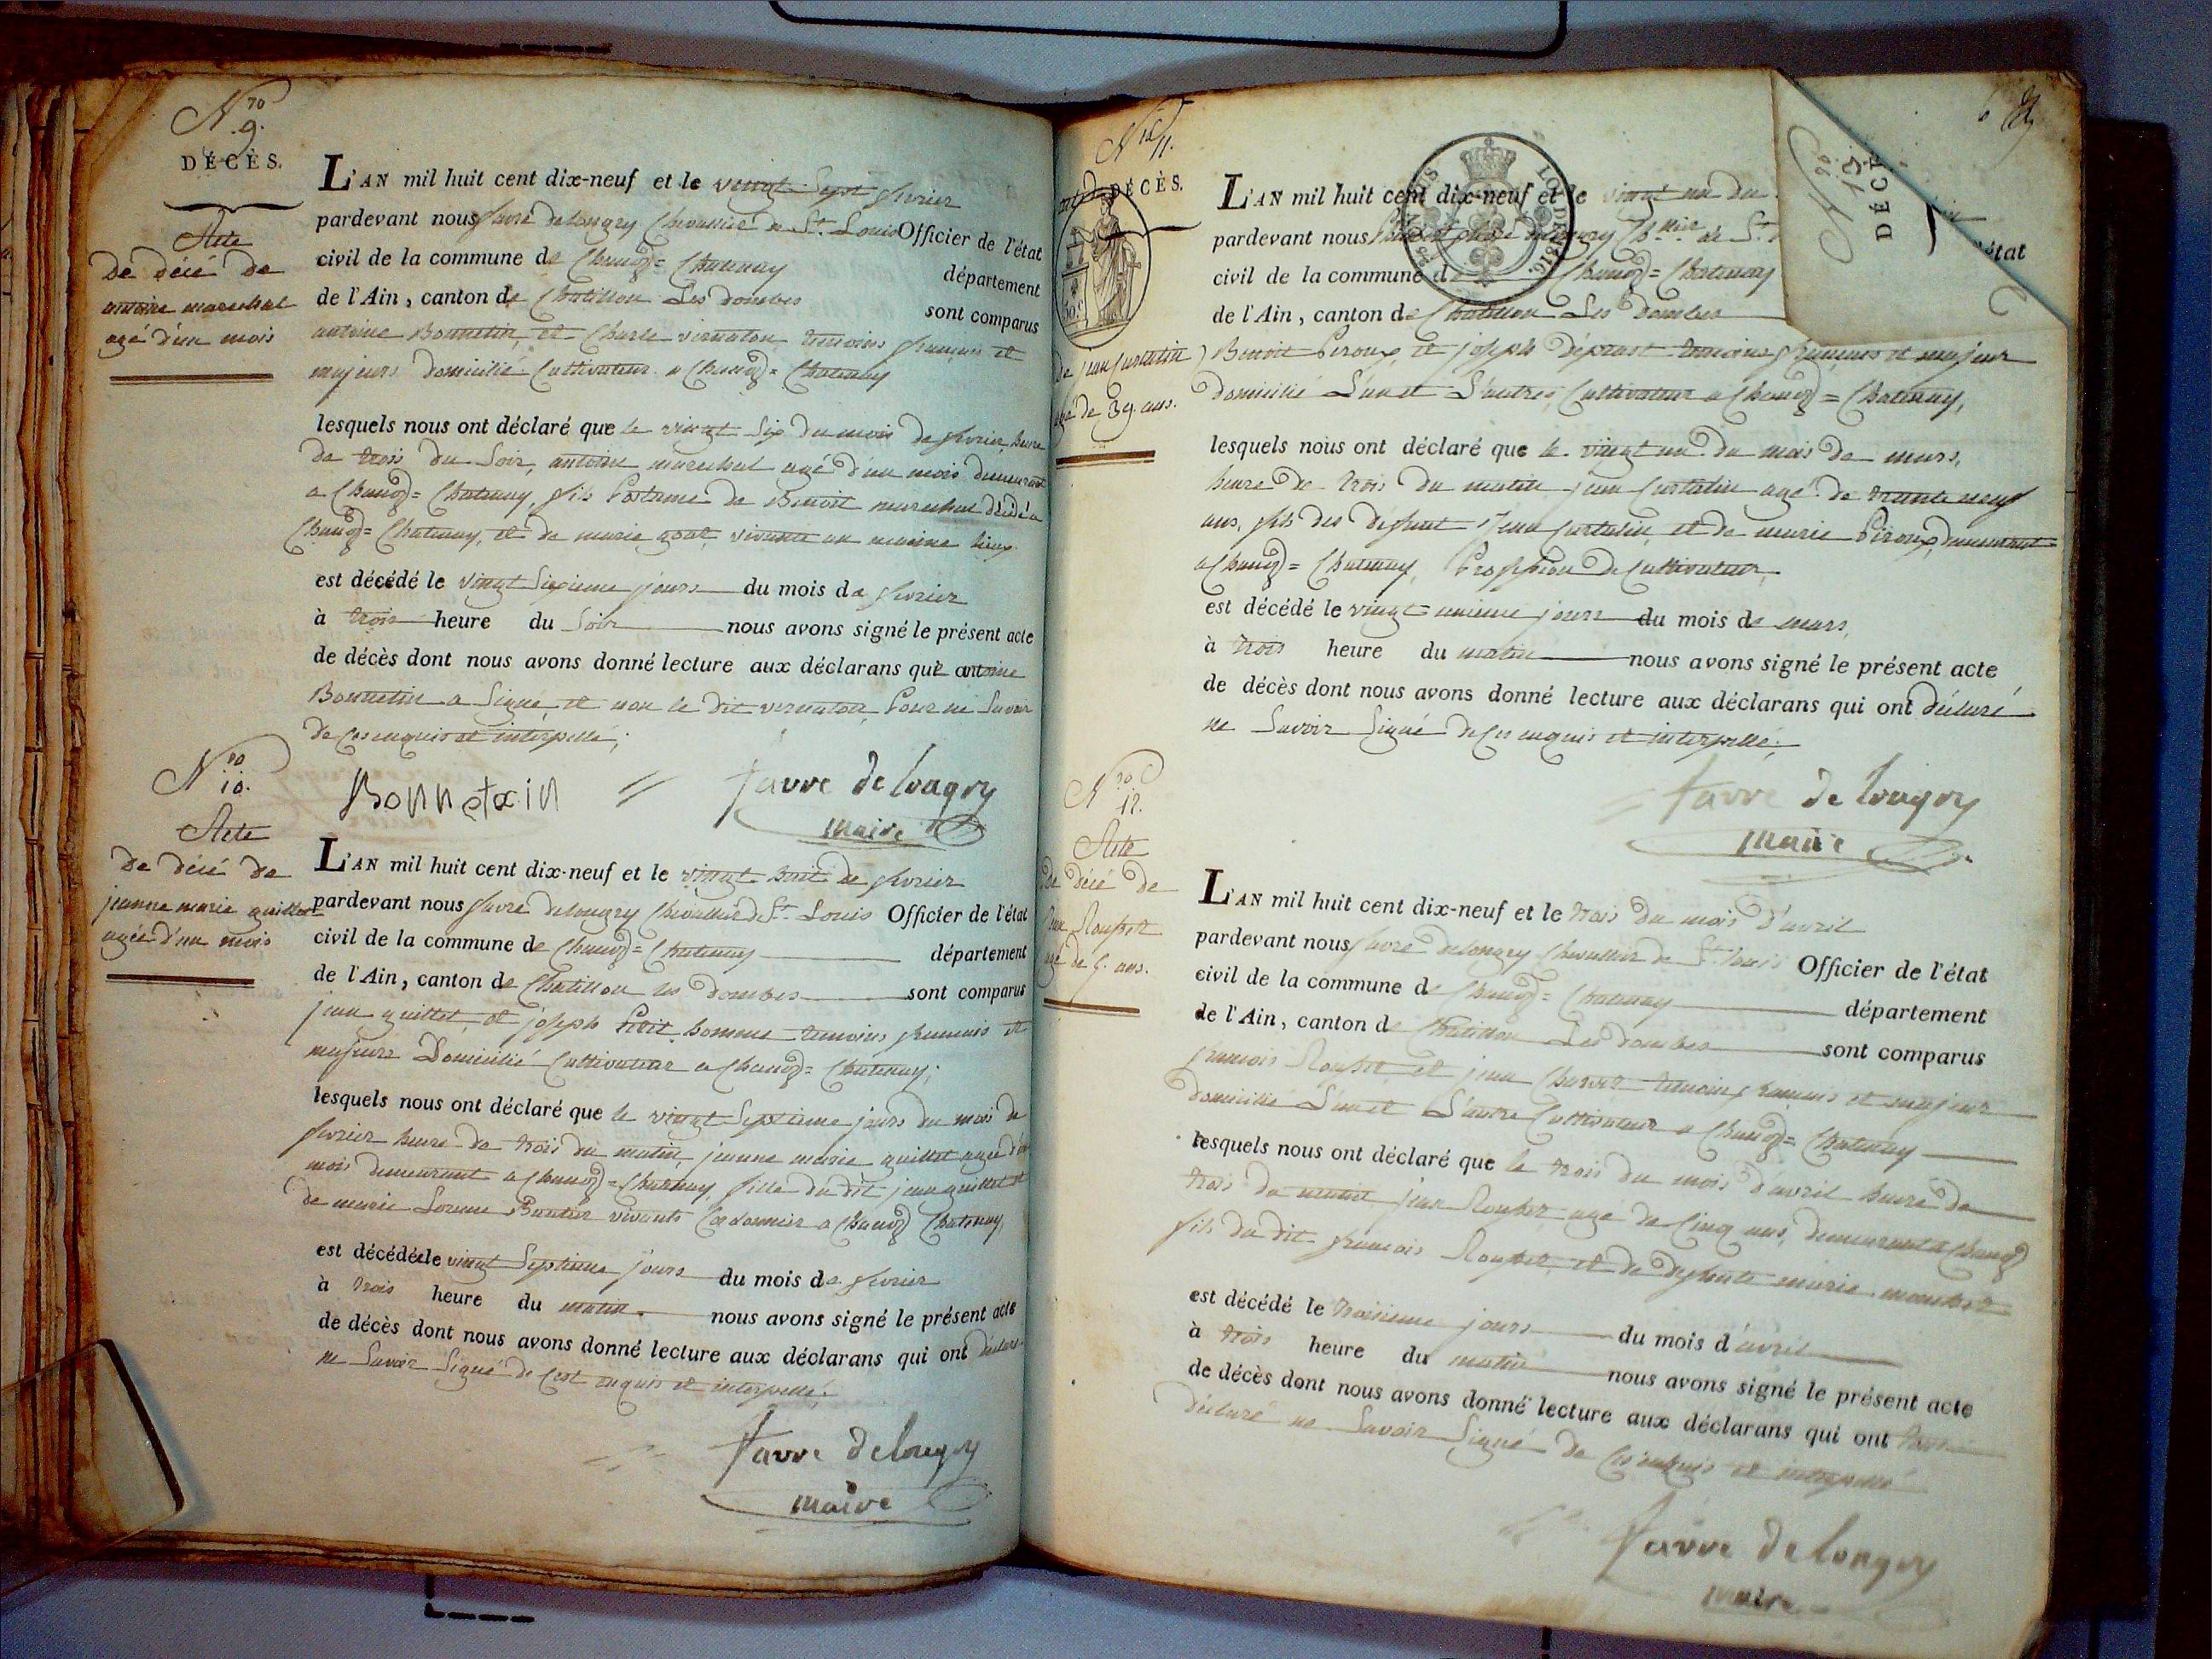 Nro 9.
DÉCÈS.
Acte
de décé de
antoine marechal
agé d'un mois
L'AN mil huit cent dix-neuf et le vingt Sept fevrier
pardevant nous favre delongry Chevallier de St. Louis Officier de l'état
civil de la commune de Chanoz= Chatenay département
de l'Ain, canton de Chatillon Les dombes sont comparus
antoine Bonnetin et Charle vernaton temoins francais et
majeurs domicilié Cultivateur a Chanoz= Chatenay
lesquels nous ont déclaré que le vingt Six du mois de fevrier, heure
de trois du Soir, antoine marechal agé d'un mois demeurant
a Chanoz= Chatenay, fils Postume de Benoit marechal décédé a
Chanoz= Chatenay, et de marie vivante au meme lieux
est décédé le vingt Sixieme jours du mois de fevrier
à trois heure du Soir nous avons signé le présent acte
de décès dont nous avons donné lecture aux déclarans que antoine
Bonnetin a Signé, et non le dit vernaton Pour ne Savoir
de Ces enquis et interpellé;
Bonnetain favre de longry
maire
Nro 10.
Acte
de décé de
jeanne marie guillet
agée d'un mois
L'AN mil huit cent dix-neuf et le vingt huit de fevrier
pardevant nous favre delongry Chevallier de St. Louis Officier de l'état
civil de la commune de Chanoz= Chatenay département
de l'Ain, canton de Chatillon les dombes sont comparus
jean guillet, et joseph Petit homme temoins francais et
majeurs Domicilié Cultivateur a Chanoz= Chatenay;
lesquels nous ont déclaré que le vingt Septieme jours du mois de
fevrier heure de trois du matin, jeanne marie guillet agée d'un
mois demeurant a Chanoz= Chatenay, fille du dit jean guillet et
de marie vivants Cordonnier a Chanoz Chatenay,
est décédée le vingt Septieme jours du mois de fevrier
à trois heure du matin nous avons signé le présent acte
de décès dont nous avons donné lecture aux déclarans qui ont déclaré
ne Savoir Signé de Cest enquis et interpellé;
favre de longry
maire
Nro 11.
DÉCÈS.
de jean Curtelin
agé de 39. ans.
L'AN mil huit cent dix-neuf et le vingt un du
pardevant nous
civil de la commune de Chanoz= Chatenay
de l'Ain, canton de Chatillon Les Dombes
Benoit Peroux, et joseph déprost temoins francais et majeur
domicilié L'un et L'autres Cultivateur a Chanoz= Chatenay,
lesquels nous ont déclaré que le vingt un du mois de mars,
heure de trois du matin jean Curtelin agé de trante neuf
ans, fils des defunt jean Curtelin, et de marie Péroux, demeurant
a Chanoz= Chatenay, Profession de Cultivateur,
est décédé le vingt= unieme jours du mois de mars,
à trois heure du matin nous avons signé le présent acte
de décès dont nous avons donné lecture aux déclarans qui ont déclaré
ne Savoir Signé de Ces enquis et interpellé;
favre de longry
maire
Nro 12.
Acte
de décé de
agé de 5. ans.
L'AN mil huit cent dix-neuf et le trois du mois d'avril
pardevant nous favre delongry Chevallier de St. Louis Officier de l'état
civil de la commune de Chanoz= Chatenay département
de l'Ain, canton de Chatillon Les dombes sont comparus
francois et jean temoins francais et majeur
domicilié L'un et L'autre Cultivateur a Chanoz= Chatenay
lesquels nous ont déclaré que le trois du mois d'avril heure de
trois du matin jean agé de Cinq ans, demeurant a Chanoz
fils du dit francois et de defunte marie
est décédé le troisieme jours du mois d'avril
à trois heure du matin nous avons signé le présent acte
de décès dont nous avons donné lecture aux déclarans qui ont
déclaré ne Savoir Signé de Ces enquis et interpellé
favre de longry
maire
Nro 13.
DÉC
état